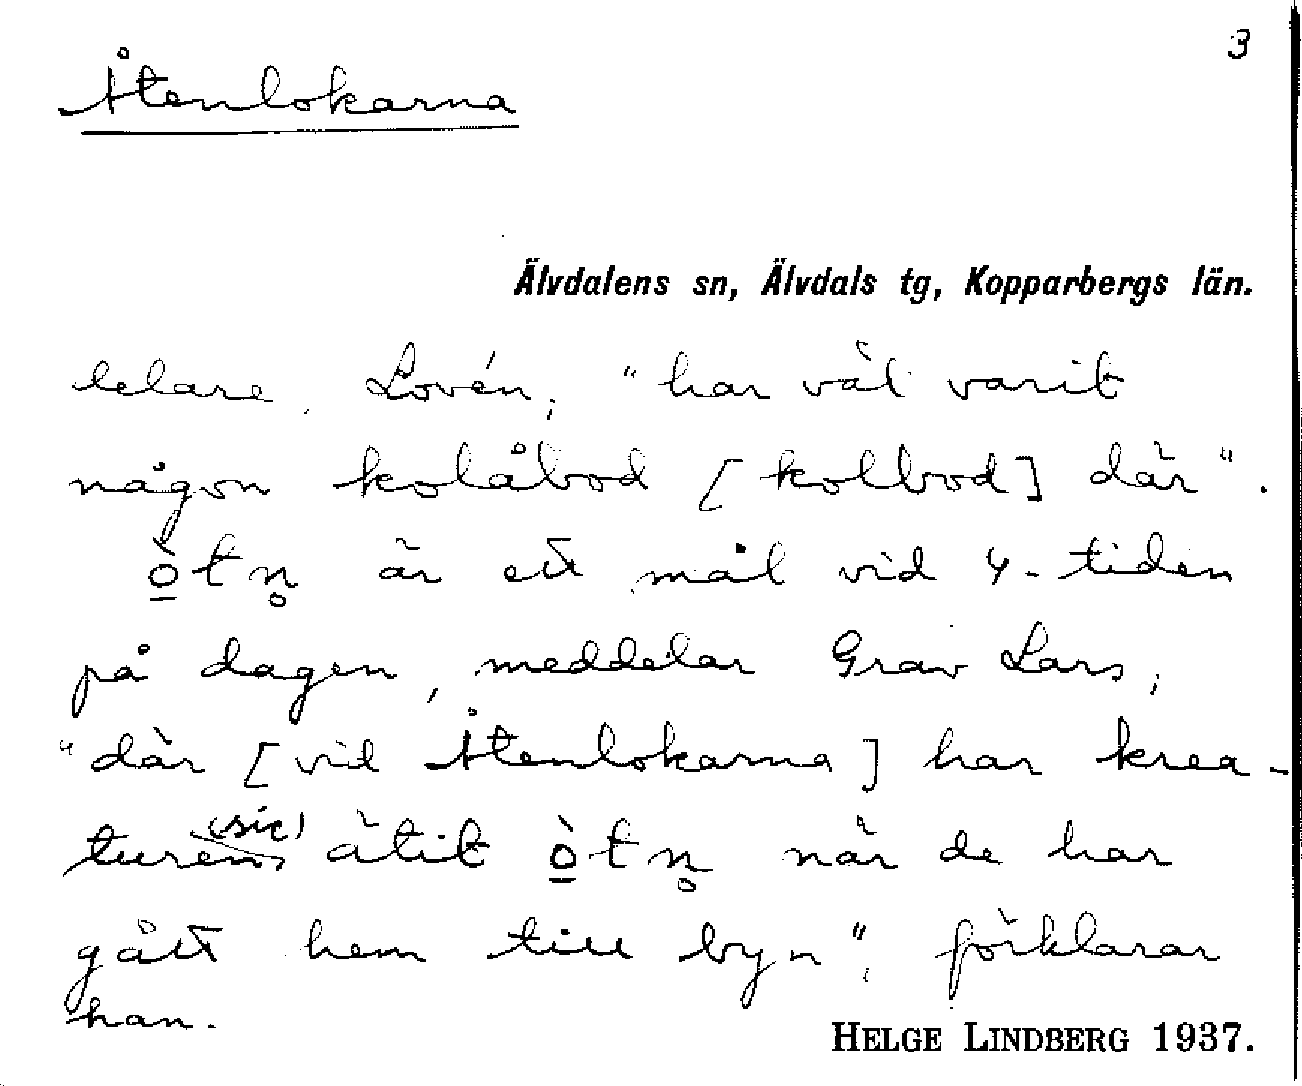 3
Åtenlokarna
Älvdalens sn, Älvdals tg, Kopparbergs län.
lelare Lovén; "har väl varit
någon kolåbod [kolbod] där".
ò̱tn̥ är ett mål vid 4-tiden
på dagen, meddelar Grav Lars;
"där [vid Åtenlokarna] har krea-
turen (sic) ätit ò̱tn̥ när de har
gått hem till byn"; förklarar
han.
HELGE LINDBERG 1937.